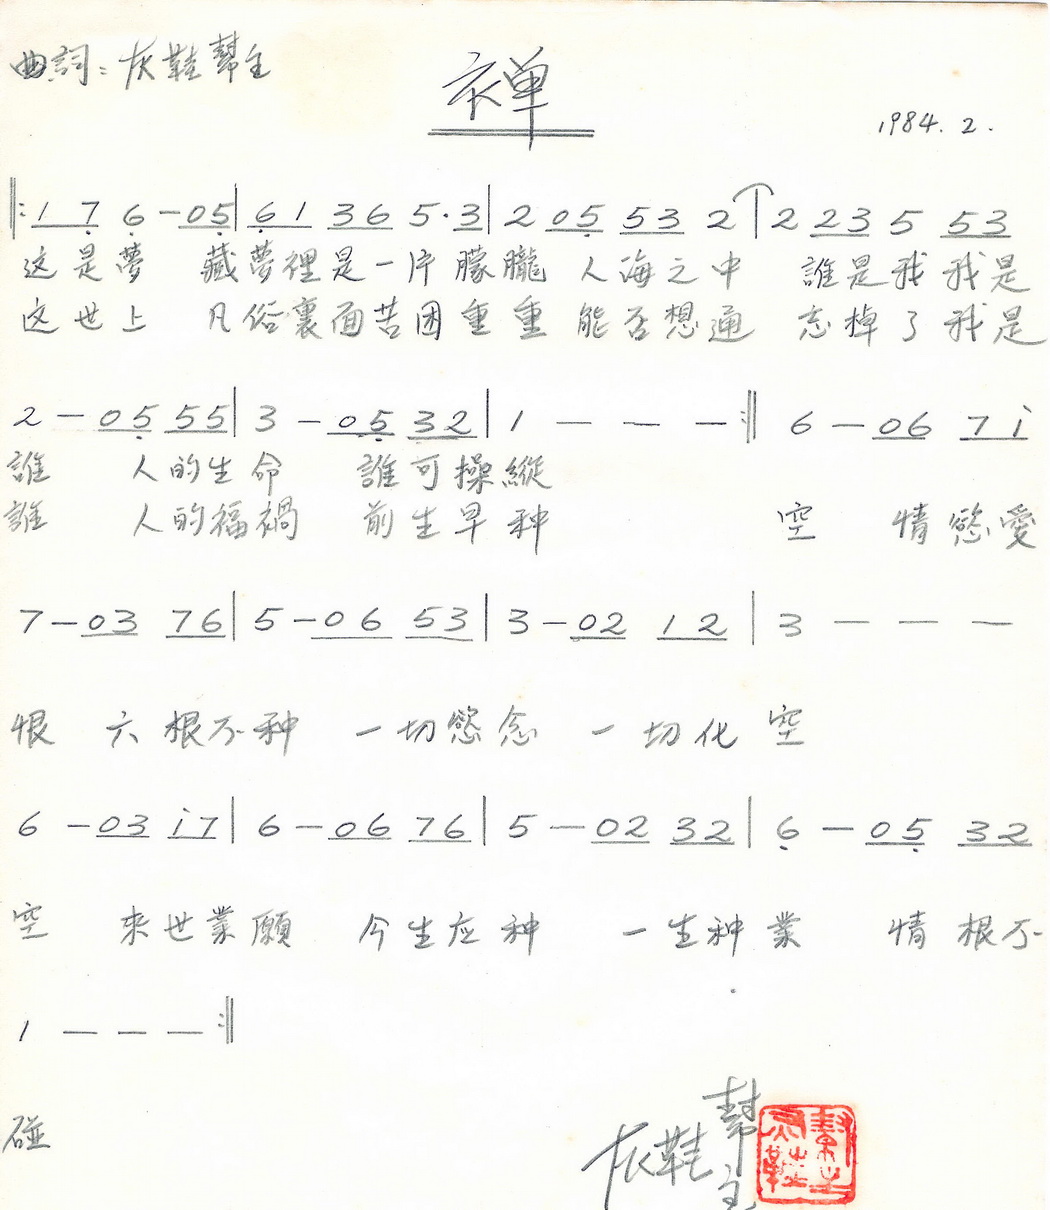 曲詞：灰鞋幫主
禅
1984.2.
‖: 1 7̣ 6̣ - 0 5̣ | 6̣ 1 3 6 5·3 | 2 0 5̣ 5 3 2 | 2 2 3 5 5 3
这是夢 藏夢裡是一片朦朧 人海之中 誰是我我是
这世上 凡俗裏面苦困重重 能否想通 忘掉了我是
2 - 0 5̣ 5 5 | 3 - 0 5̣ 3 2 | 1 - - - :‖ 6 - 0 6 7 i
誰 人的生命 誰可操縱
誰 人的福禍 前生早种 空 情慾愛
7 - 0 3 7 6 | 5 - 0 6 5 3 | 3 - 0 2 1 2 | 3 - - -
恨 六根不种 一切慾念 一切化空
6 - 0 3 i 7 | 6 - 0 6 7 6 | 5 - 0 2 3 2 | 6̣ - 0 5̣ 3 2
空 来世業願 今生应种 一生种業 情根不
1 - - - :‖
碰
灰鞋幫主